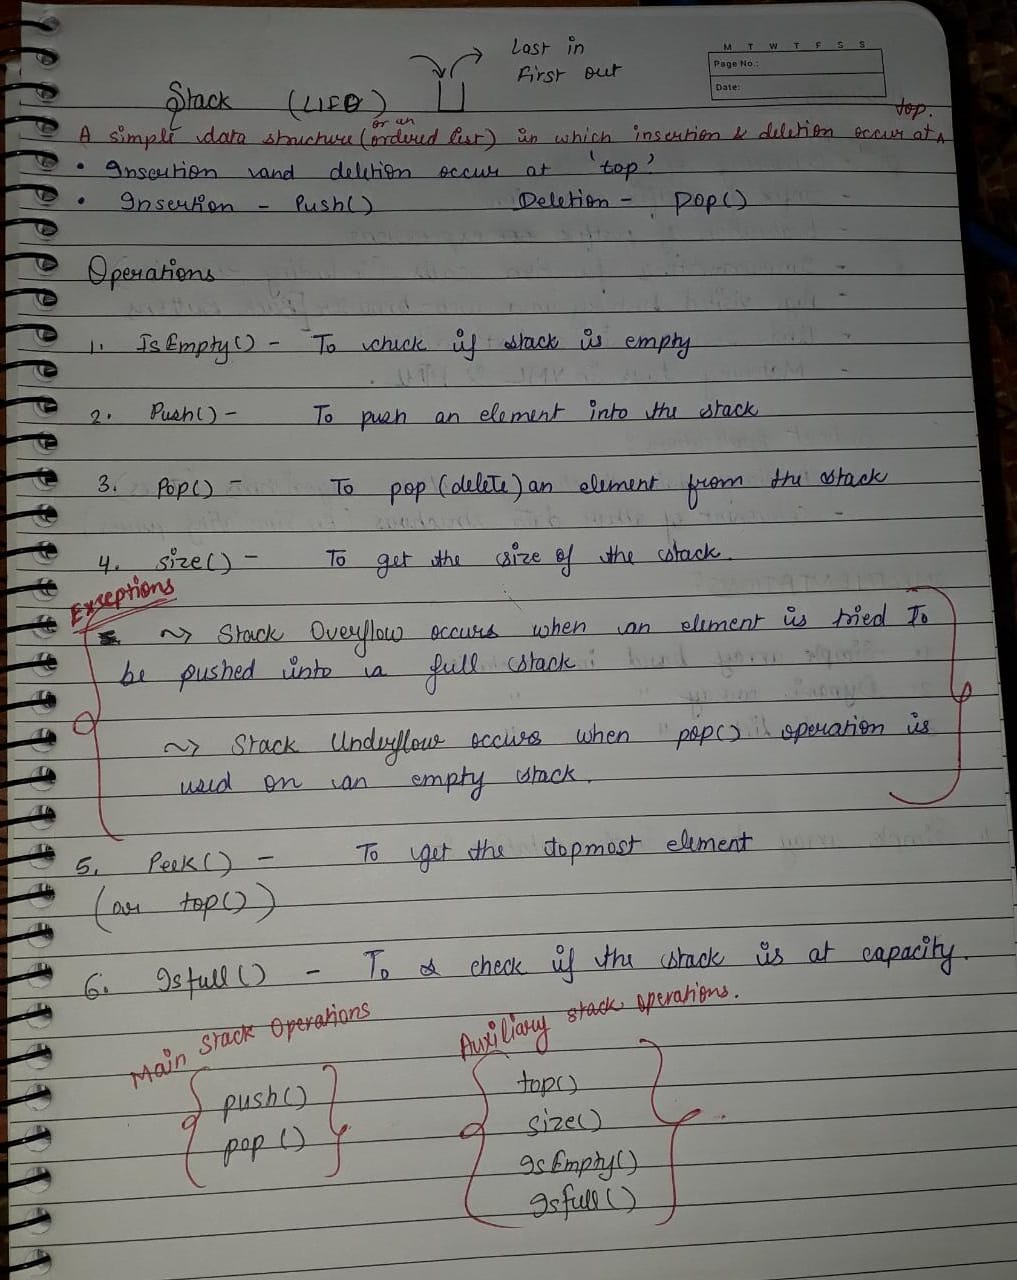 Last in
First out
M T W T F S S
Page No.:
Date:
Stack (LIFO)
or an
top.
A simple data structure (ordered list) in which insertion & deletion occur at
• Insertion and deletion occur at 'top'
• Insertion - Push() Deletion - Pop()
Operations
1. IsEmpty() - To check if stack is empty
2. Push() - To push an element into the stack
3. Pop() - To pop (delete) an element from the stack
4. size() - To get the size of the stack.
Exceptions
~> Stack Overflow occurs when an element is tried To
be pushed into a full stack
~> Stack Underflow occurs when pop() operation is
used on an empty stack.
5. Peek() - To get the topmost element
(or top())
6. Isfull() - To check if the stack is at capacity.
Main Stack Operations
Auxiliary stack operations.
push()
pop()
top()
size()
IsEmpty()
Isfull()